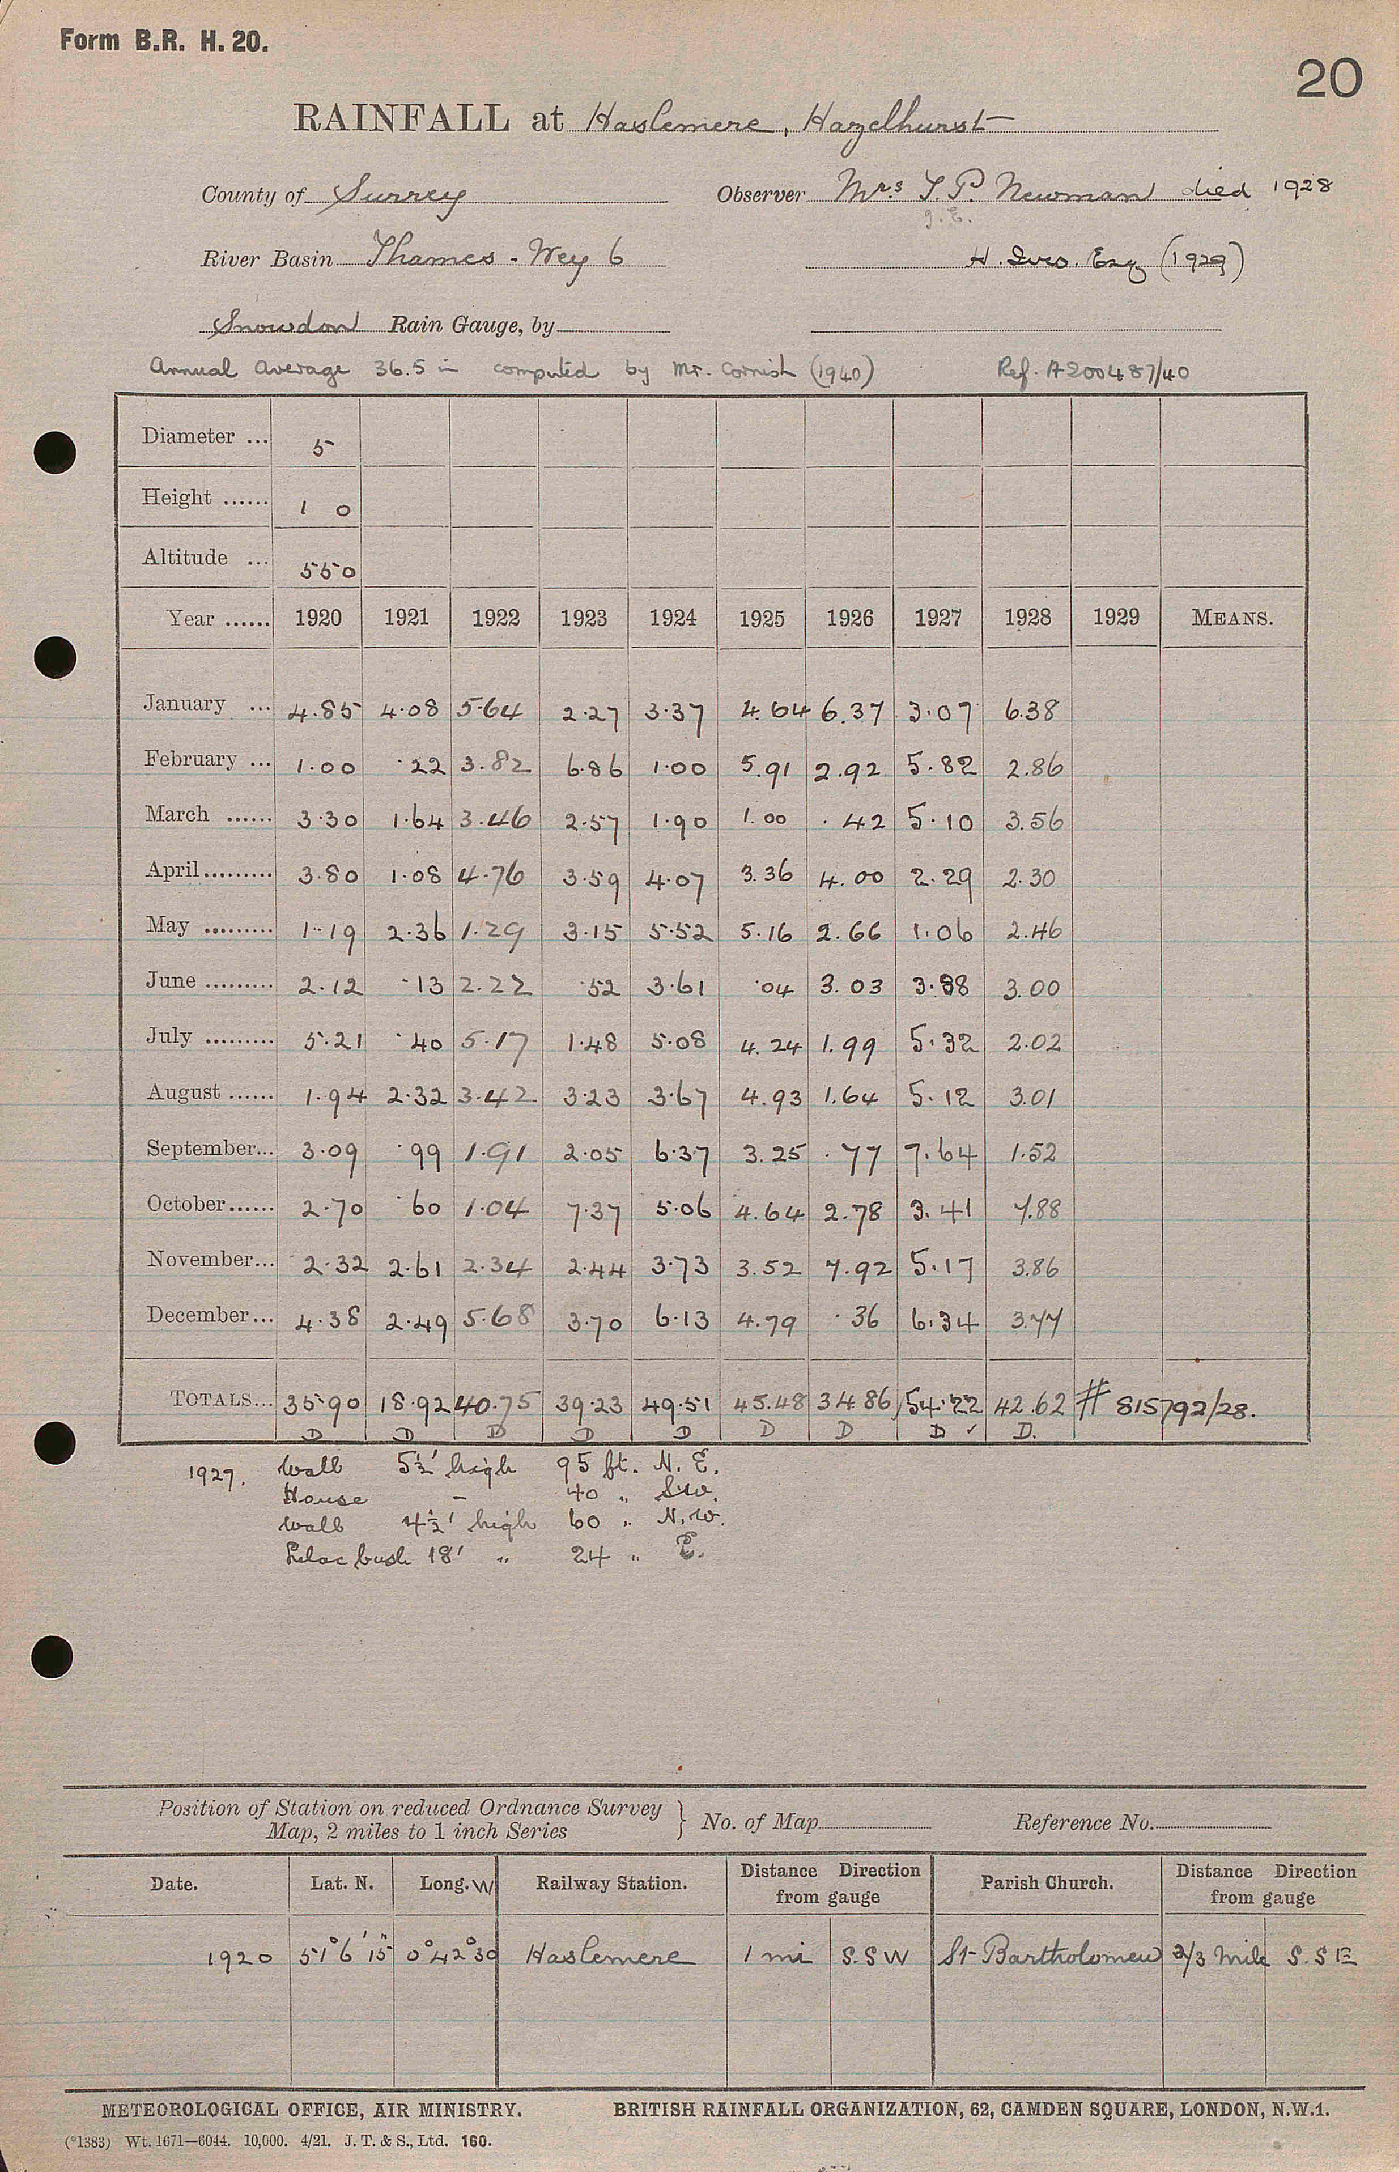 Form B.R. H. 20.
20
RAINFALL at Haslemere, Hazelhurst
County of Surrey Observer Mrs T. P. Newman died 1928
J. E.
River Basin Thames - Wey 6 (1929)
Snowdon Rain Gauge, by
Annual Average 36.5 in computed by Mr. Cornish (1940) Ref. A200487/40
Diameter ... 5
Height ...... 1 0
Altitude ... 550
Year ...... 1920 1921 1922 1923 1924 1925 1926 1927 1928 1929 MEANS.
January ... 4.85 4.08 5.64 2.27 3.37 4.64 6.37 3.07 6.38
February ... 1.00 .22 3.82 6.86 1.00 5.91 2.92 5.82 2.86
March ...... 3.30 1.64 3.46 2.57 1.90 1.00 .42 5.10 3.56
April......... 3.80 1.08 4.76 3.59 4.07 3.36 4.00 2.29 2.30
May ......... 1.19 2.36 1.29 3.15 5.52 5.16 2.66 1.06 2.46
June ......... 2.12 .13 2.22 .52 3.61 .04 3.03 3.88 3.00
July ......... 5.21 .40 5.17 1.48 5.08 4.24 1.99 5.32 2.02
August ...... 1.94 2.32 3.42 3.23 3.67 4.93 1.64 5.12 3.01
September... 3.09 .99 1.91 2.05 6.37 3.25 .77 7.64 1.52
October...... 2.70 .60 1.04 7.37 5.06 4.64 2.78 3.41 7.88
November... 2.32 2.61 2.34 2.44 3.73 3.52 7.92 5.17 3.86
December... 4.38 2.49 5.68 3.70 6.13 4.79 .36 6.34 3.77
TOTALS... 35.90 18.92 40.75 39.23 49.51 45.48 34.86 54.22 42.62 # 815792/28.
D D D D D D D D ✓ D.
1927. Wall 5½' high 95 ft. N. E.
House - 40 " SW.
Wall 4½' high 60 " N.W.
Lilac bush 18' " 24 " E.
Position of Station on reduced Ordnance Survey
Map, 2 miles to 1 inch Series } No. of Map Reference No.
Date. Lat. N. Long. W Railway Station. Distance Direction from gauge Parish Church. Distance Direction from gauge
1920 51°6'15" 0°42°30 Haslemere 1 mi S.S W St Bartholomew 2/3 mile S. S E
METEOROLOGICAL OFFICE, AIR MINISTRY. BRITISH RAINFALL ORGANIZATION, 62, CAMDEN SQUARE, LONDON, N.W.1.
(*1383) Wt. 1671—6044. 10,000. 4/21. J. T. & S., Ltd. 160.